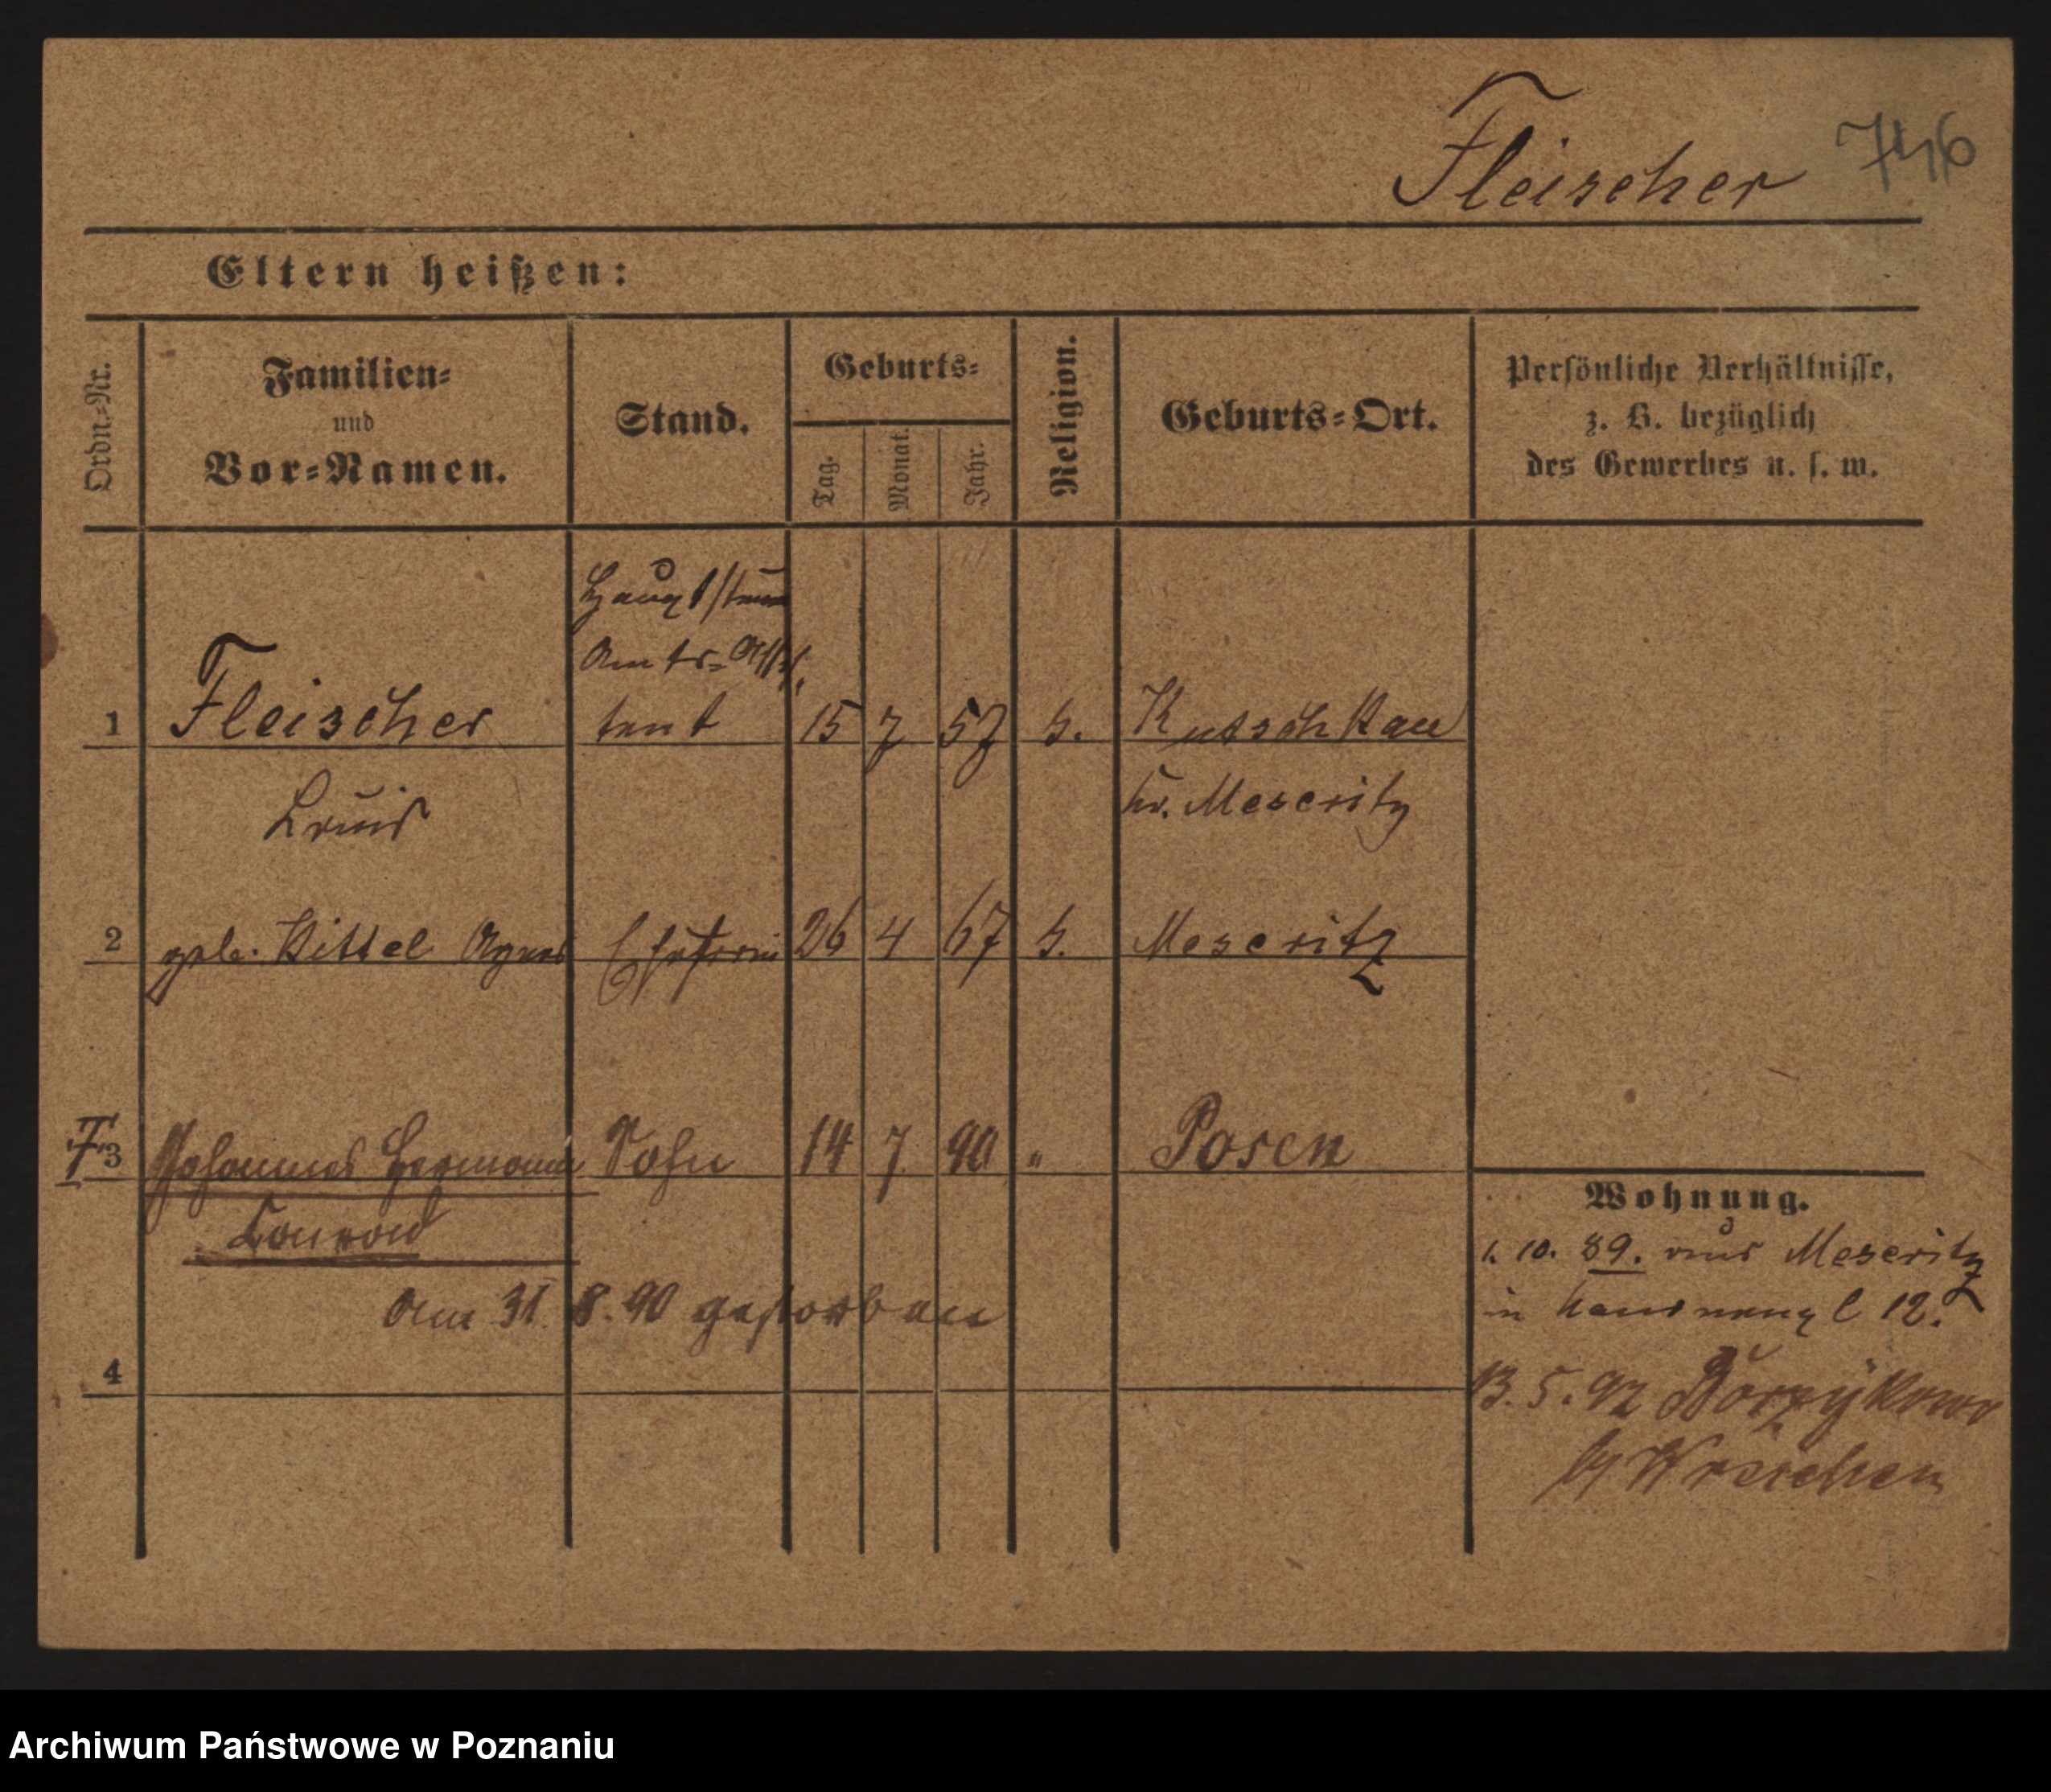 Fleischer 746
Eltern heißen:
Ordn.-Nr.
Familien-
und
Vor-Namen.
Stand.
Geburts-
Tag.
Monat.
Jahr.
Religion.
Geburts-Ort.
Persönliche Verhältnisse,
z. B. bezüglich
des Gewerbes u. s. w.
Hauptsteuer
Amts-Assis
tent
1 Fleischer 15 7 57 Kutschkau
Louis Kr. Meseritz
2 geb. Kittel Agnes Ehefrau 26 4 67 Meseritz
3 Johannes Hermann Sohn 14 7 90 " Posen
Conrad
Am 31. 8. 90 gestorben
4
Wohnung.
1. 10. 89. aus Meseritz
in 12.
13. 5. 92 Borzykowo
b/ Wreschen
Archiwum Państwowe w Poznaniu